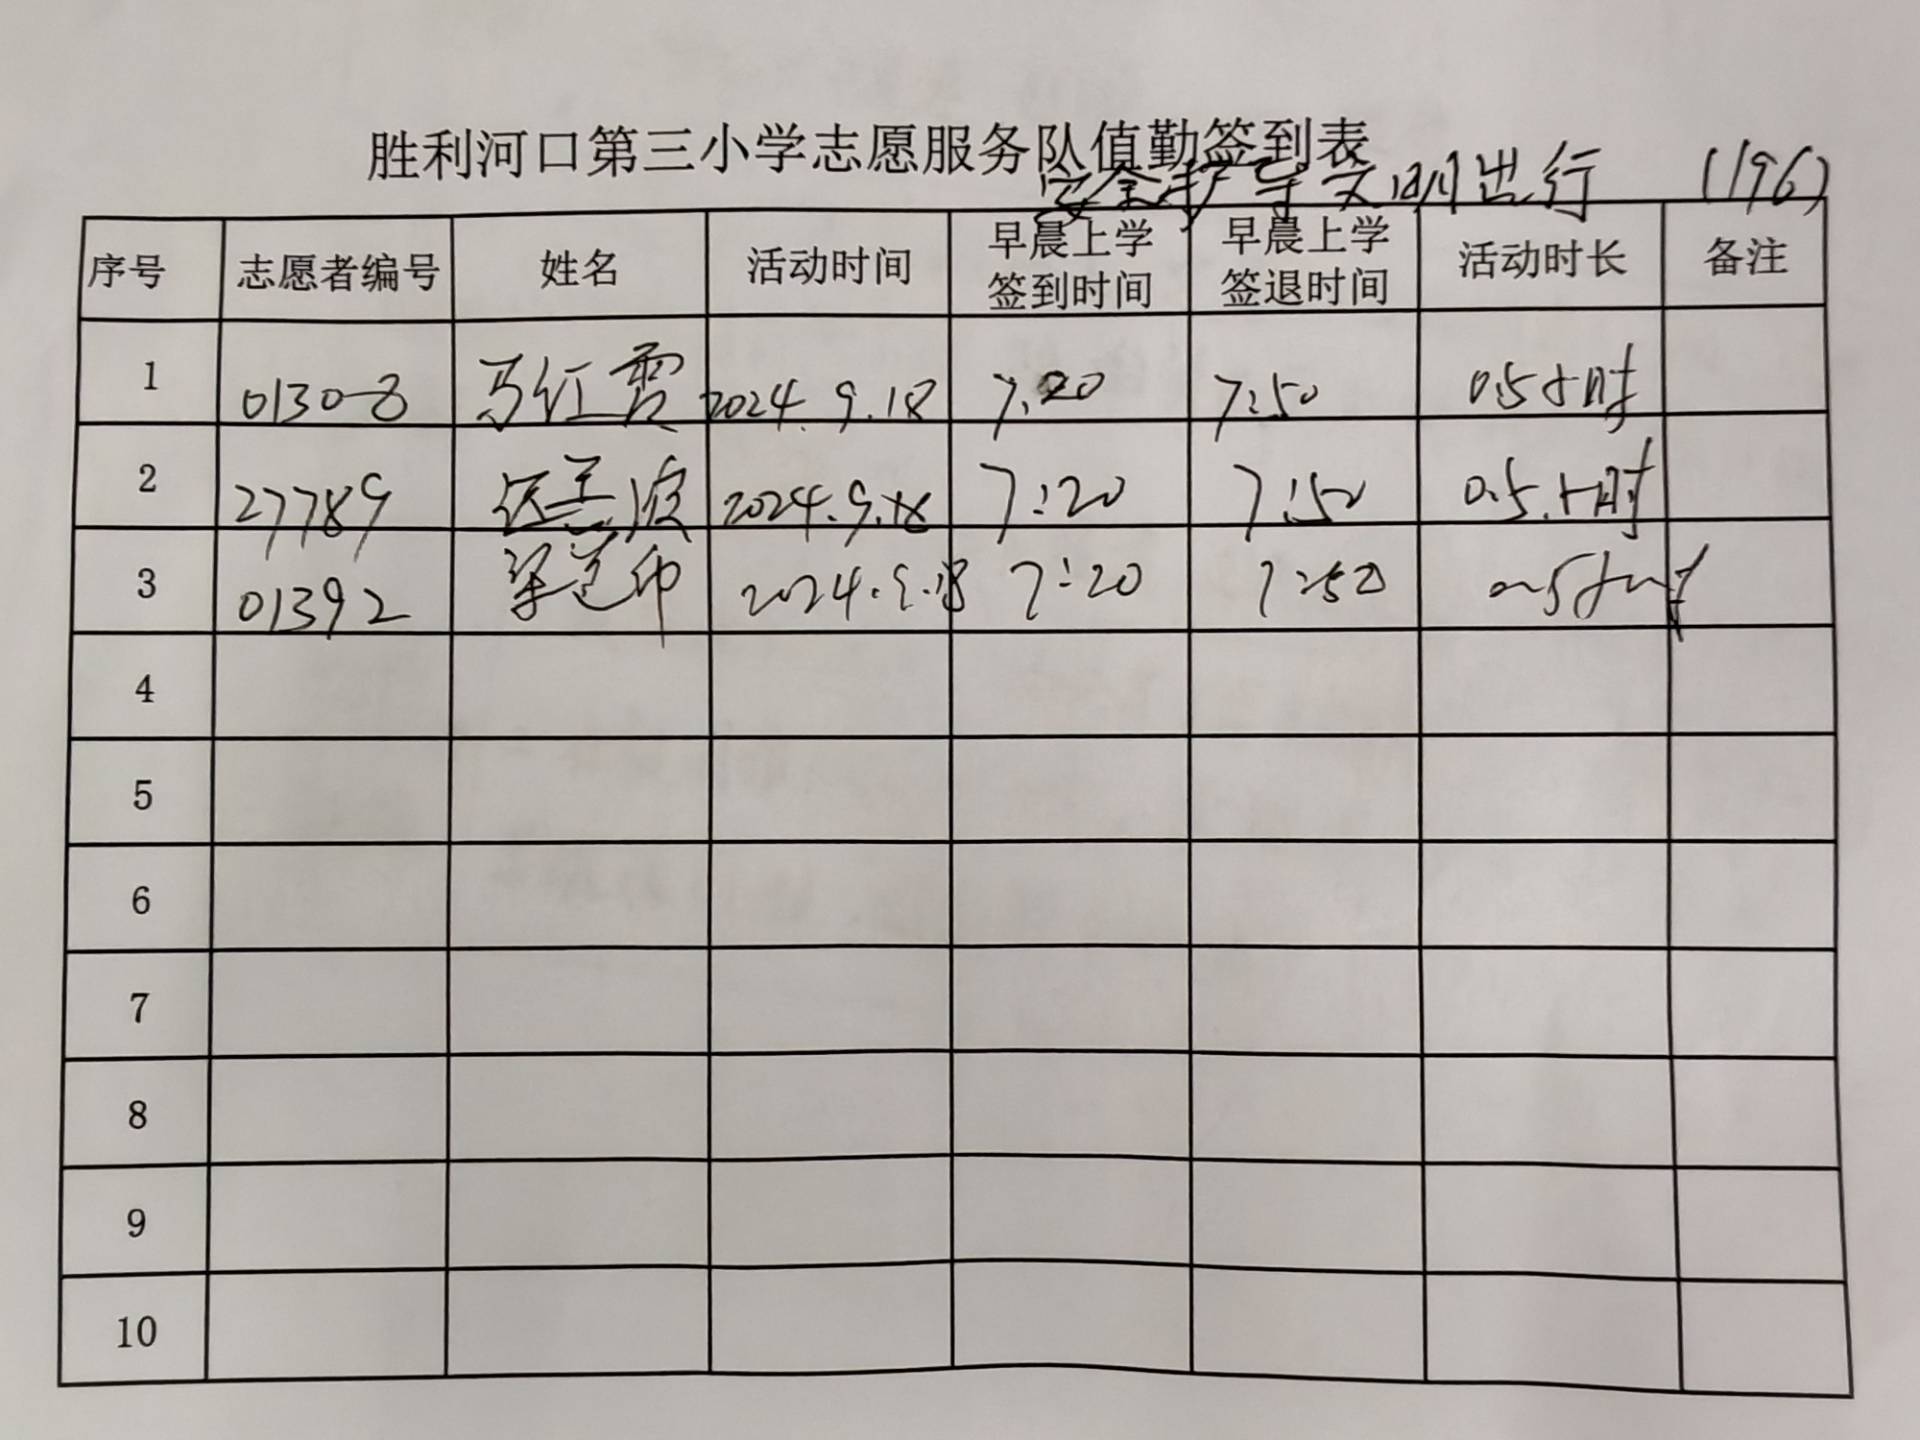 胜利河口第三小学志愿服务队值勤签到表
安全护导文明出行 (196)
序号 志愿者编号 姓名 活动时间 早晨上学签到时间 早晨上学签退时间 活动时长 备注
1 01308 马红霞 2024.9.18 7:20 7:50 0.5小时
2 27789 2024.9.18 7:20 7:50 0.5小时
3 01392 2024.9.18 7:20 7:50 0.5小时
4
5
6
7
8
9
10